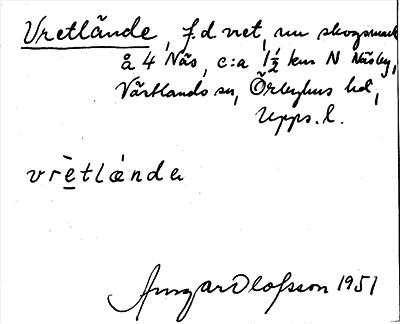 Vretlände, f.d vret, nu skogsmark
å 4 Näs, c:a 1½ km N Näsby,
Vårtlands sn, Örbyhus hd,
Upps. l.
vrètlǽnde
Ansgar Olofsson 1951